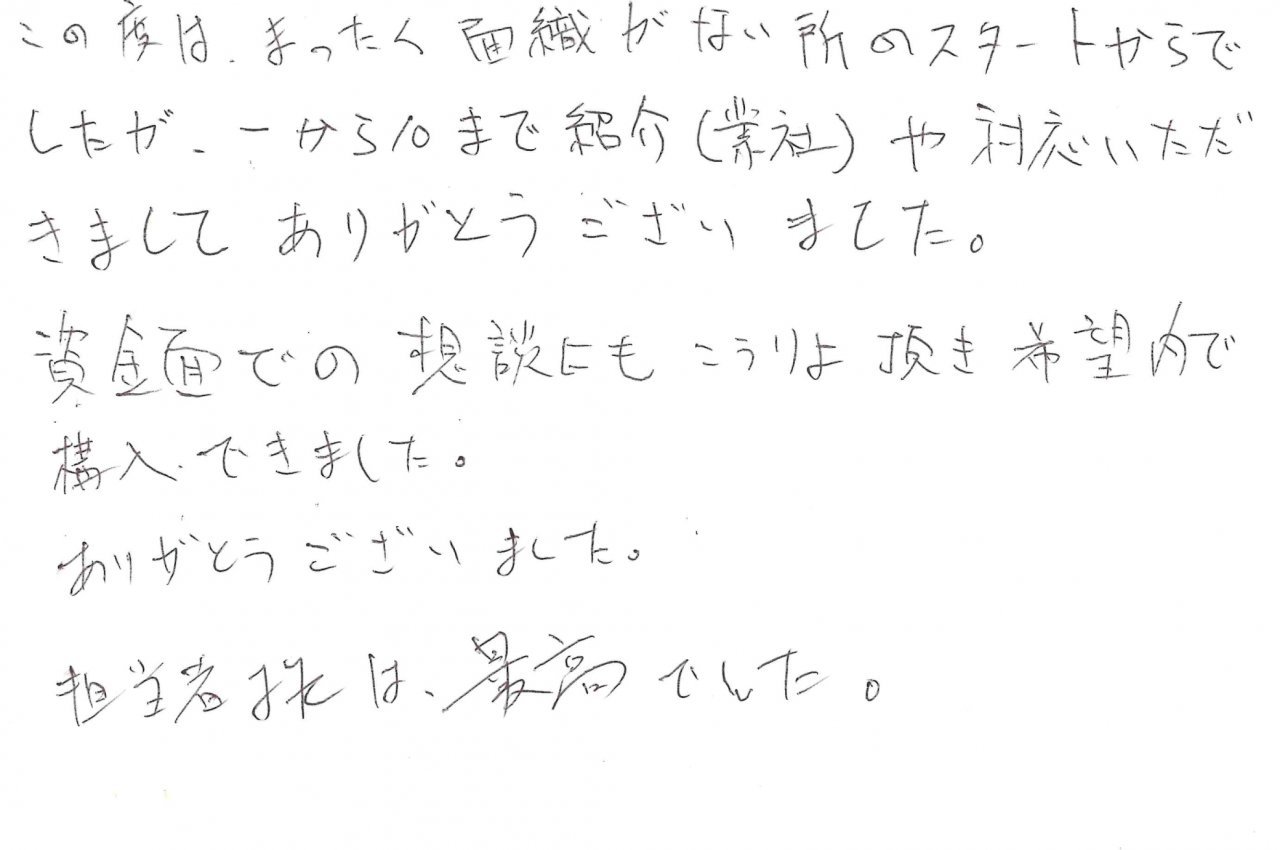 この度は、まったく面織がない所のスタートからで
したが、一から10まで紹介(業社)や対応いただ
きまして ありがとうございました。
資金面での想談にもこうりよ頂き希望内で
購入できました。
ありがとうございました。
担当者様は、最高でした。